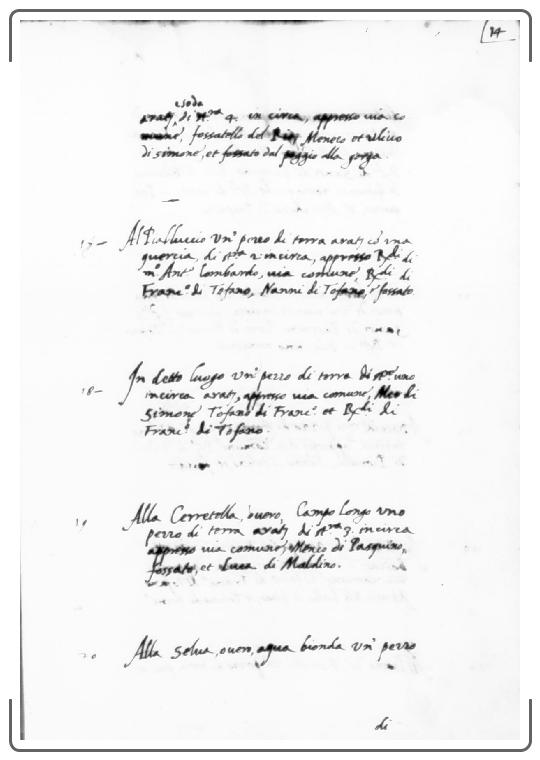 24
e soda
arati, di st.ra 4. in circa, appresso uia co
mune, fossatello del Rio, Meneco et uliuo
di simone, et fossato dal poggio alla
17 — Al Un.o pezzo di terra arati, cō una
quercia, di st.ra 2. incirca, appresso Rx.di di
m.o Ant.o lombardo, uia comune, Rx.di di
Franc.o di Tofano, Nanni di Tofano, e fossato.
18 — In detto luogo Un.o pezzo di terra di st.ro uno
incirca arati, appresso uia comune, di
Simone Tofano di Franc.o et Rx.di di
Franc.o di Tofano.
19 Alla Cerretella, ouero, Campo Longo uno
pezzo di terra arati, di st.ra 3. incirca
appresso uia comune, Menco di Pasquino,
fossato, et Luca di Maldino.
20 Alla Selua, ouero, aqua bionda Un.o pezzo
di